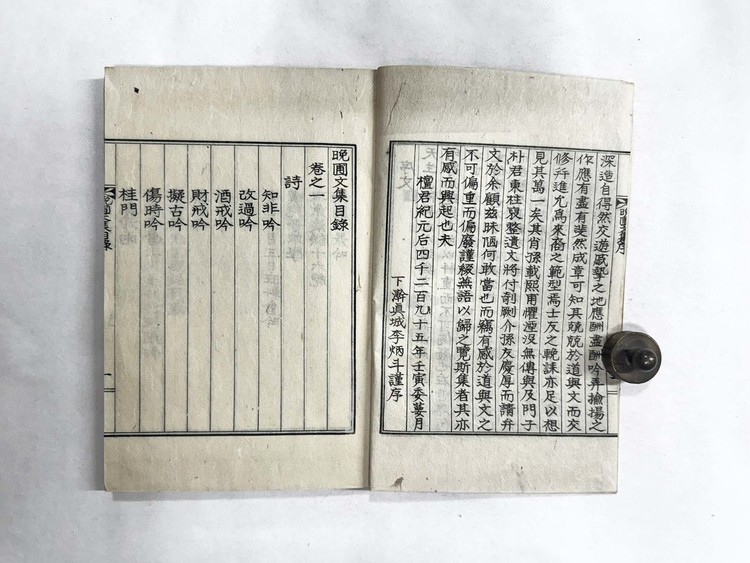 深造自得然交遊戚摯之地應酬盡酬吟弄撿揚之
作應有盡有斐然成章可知其兢兢於道與文而交
修幷進允爲來裔之範型焉士友之輓誄亦足以想
見其萬一矣其肖孫載熙用懼湮沒無傳與及門子
朴君東柱裒整遺文將付剞劂介孫友慶厚而請弁
文於余顧滋眛偘何敢當也而竊有感於道與文之
不可偏重而偏廢謹綴蕪語以歸之覽斯集者其亦
有感而興起也夫
檀君紀元后四千二百九十五年壬寅委蔓月
下澣眞城李炳斗謹序
晚圃文集序
晚圃文集目錄
卷之一
詩
知非吟
改過吟
酒戒吟
財戒吟
擬古吟
傷時吟
桂門
晚圃文集目錄
一